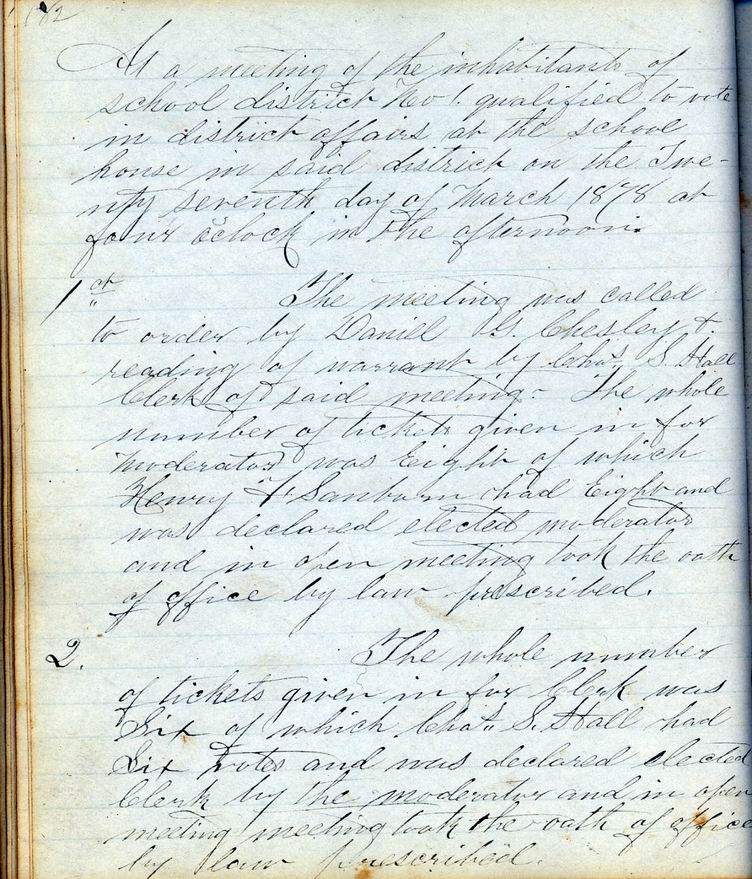 182
At a meeting of the inhabitants of
school district No 1. qualified to vote
in district affairs at the school
house in said district on the Twe-
nty seventh day of March 1878 at
four oclock in the afternoon.
1st The meeting was called
to order by Daniel G. Chesley &
reading of warrant by Chas. S. Hall
Clerk of said meeting - The whole
number of tickets given in for
moderator was Eight of which
Henry F. Sanborn had Eight and
was declared elected moderator
and in open meeting took the oath
of office by law prescribed.
2. The whole number
of tickets given in for Clerk was
Six of which Chas. S. Hall had
Six votes and was declared elected
Clerk by the moderator and in open
meeting meeting took the oath of office
by law prescribed.